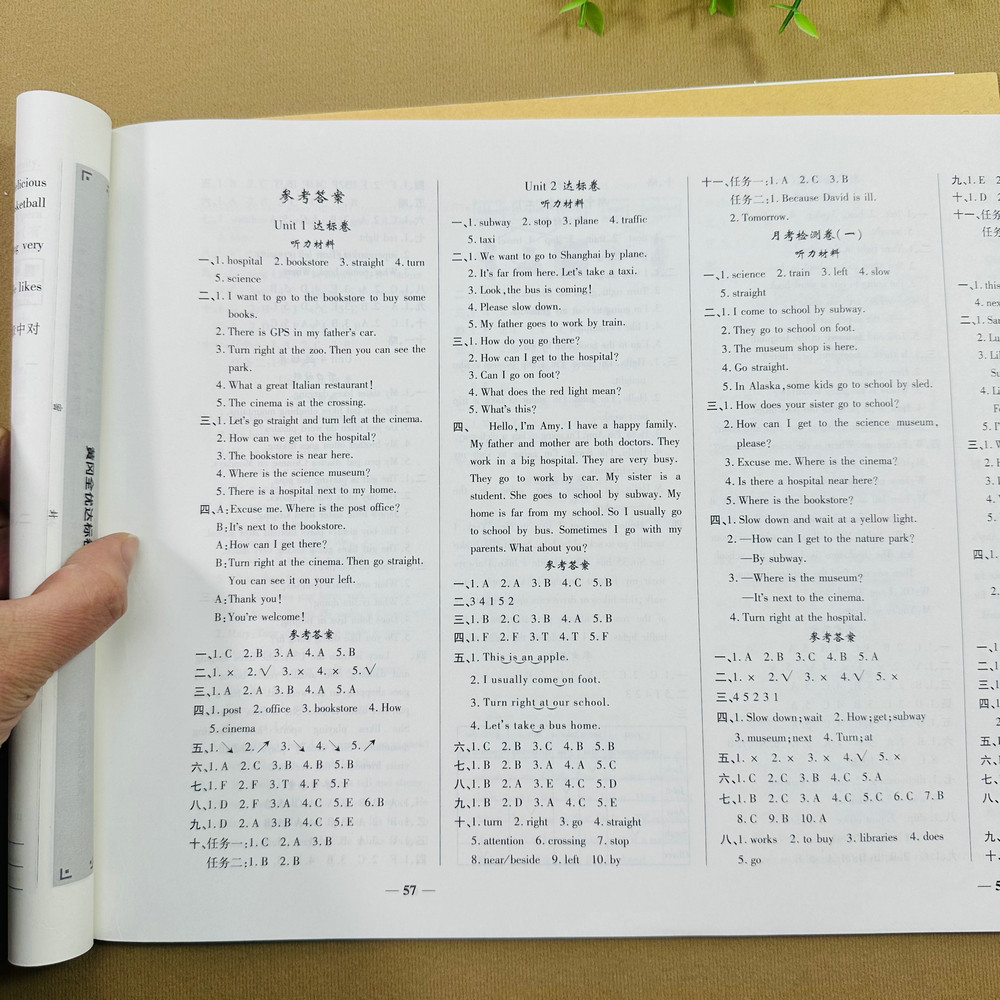 licious
ketball
very
likes
中对
参考答案
Unit 1 达标卷
听力材料
一、1. hospital 2. bookstore 3. straight 4. turn
5. science
二、1. I want to go to the bookstore to buy some
books.
2. There is GPS in my father's car.
3. Turn right at the zoo. Then you can see the
park.
4. What a great Italian restaurant!
5. The cinema is at the crossing.
三、1. Let's go straight and turn left at the cinema.
2. How can we get to the hospital?
3. The bookstore is near here.
4. Where is the science museum?
5. There is a hospital next to my home.
四、A:Excuse me. Where is the post office?
B:It's next to the bookstore.
A:How can I get there?
B:Turn right at the cinema. Then go straight.
You can see it on your left.
A:Thank you!
B:You're welcome!
参考答案
一、1. C 2. B 3. A 4. A 5. B
二、1. × 2. √ 3. × 4. × 5. √
三、1. A 2. A 3. B 4. A 5. A
四、1. post 2. office 3. bookstore 4. How
5. cinema
五、1. ↘ 2. ↗ 3. ↘ 4. ↘ 5. ↗
六、1. A 2. C 3. B 4. B 5. B
七、1. F 2. F 3. T 4. F 5. F
八、1. D 2. F 3. A 4. C 5. E 6. B
九、1. D 2. A 3. B 4. C 5. E
十、任务一:1. C 2. A 3. B
任务二:1. B 2. B
Unit 2 达标卷
听力材料
一、1. subway 2. stop 3. plane 4. traffic
5. taxi
二、1. We want to go to Shanghai by plane.
2. It's far from here. Let's take a taxi.
3. Look,the bus is coming!
4. Please slow down.
5. My father goes to work by train.
三、1. How do you go there?
2. How can I get to the hospital?
3. Can I go on foot?
4. What does the red light mean?
5. What's this?
四、 Hello, I'm Amy. I have a happy family.
My father and mother are both doctors. They
work in a big hospital. They are very busy.
They go to work by car. My sister is a
student. She goes to school by subway. My
home is far from my school. So I usually go
to school by bus. Sometimes I go with my
parents. What about you?
参考答案
一、1. A 2. A 3. B 4. C 5. B
二、3 4 1 5 2
三、1. B 2. C 3. B 4. A 5. B
四、1. F 2. F 3. T 4. T 5. F
五、1. This is an apple.
2. I usually come on foot.
3. Turn right at our school.
4. Let's take a bus home.
六、1. C 2. B 3. C 4. B 5. B
七、1. B 2. B 3. A 4. A 5. C
八、1. B 2. A 3. E 4. C 5. D
九、1. B 2. D 3. A 4. C 5. E
十、1. turn 2. right 3. go 4. straight
5. attention 6. crossing 7. stop
8. near/beside 9. left 10. by
— 57 —
十一、任务一:1. A 2. C 3. B
任务二:1. Because David is ill.
2. Tomorrow.
月考检测卷(一)
听力材料
一、1. science 2. train 3. left 4. slow
5. straight
二、1. I come to school by subway.
2. They go to school on foot.
3. The museum shop is here.
4. Go straight.
5. In Alaska,some kids go to school by sled.
三、1. How does your sister go to school?
2. How can I get to the science museum,
please?
3. Excuse me. Where is the cinema?
4. Is there a hospital near here?
5. Where is the bookstore?
四、1. Slow down and wait at a yellow light.
2. —How can I get to the nature park?
—By subway.
3. —Where is the museum?
—It's next to the cinema.
4. Turn right at the hospital.
参考答案
一、1. A 2. B 3. C 4. B 5. A
二、1. × 2. √ 3. × 4. √ 5. ×
三、4 5 2 3 1
四、1. Slow down;wait 2. How;get;subway
3. museum;next 4. Turn;at
五、1. × 2. × 3. × 4. √ 5. ×
六、1. C 2. C 3. B 4. C 5. A
七、1. B 2. C 3. A 4. C 5. C 6. C 7. B
8. C 9. B 10. A
八、1. works 2. to buy 3. libraries 4. does
5. go
九、1. E 2
十、1. D 2
十一、任务
任
一、1. this
4. nex
二、1. Sar
2. Lu
3. Li
Su
4. Li
Fe
5. I'
三、1. W
四、1.
2.
一、1.
二、1.
三、1.
四、1.
五、1.
六、1.
七、1.
九、
十、